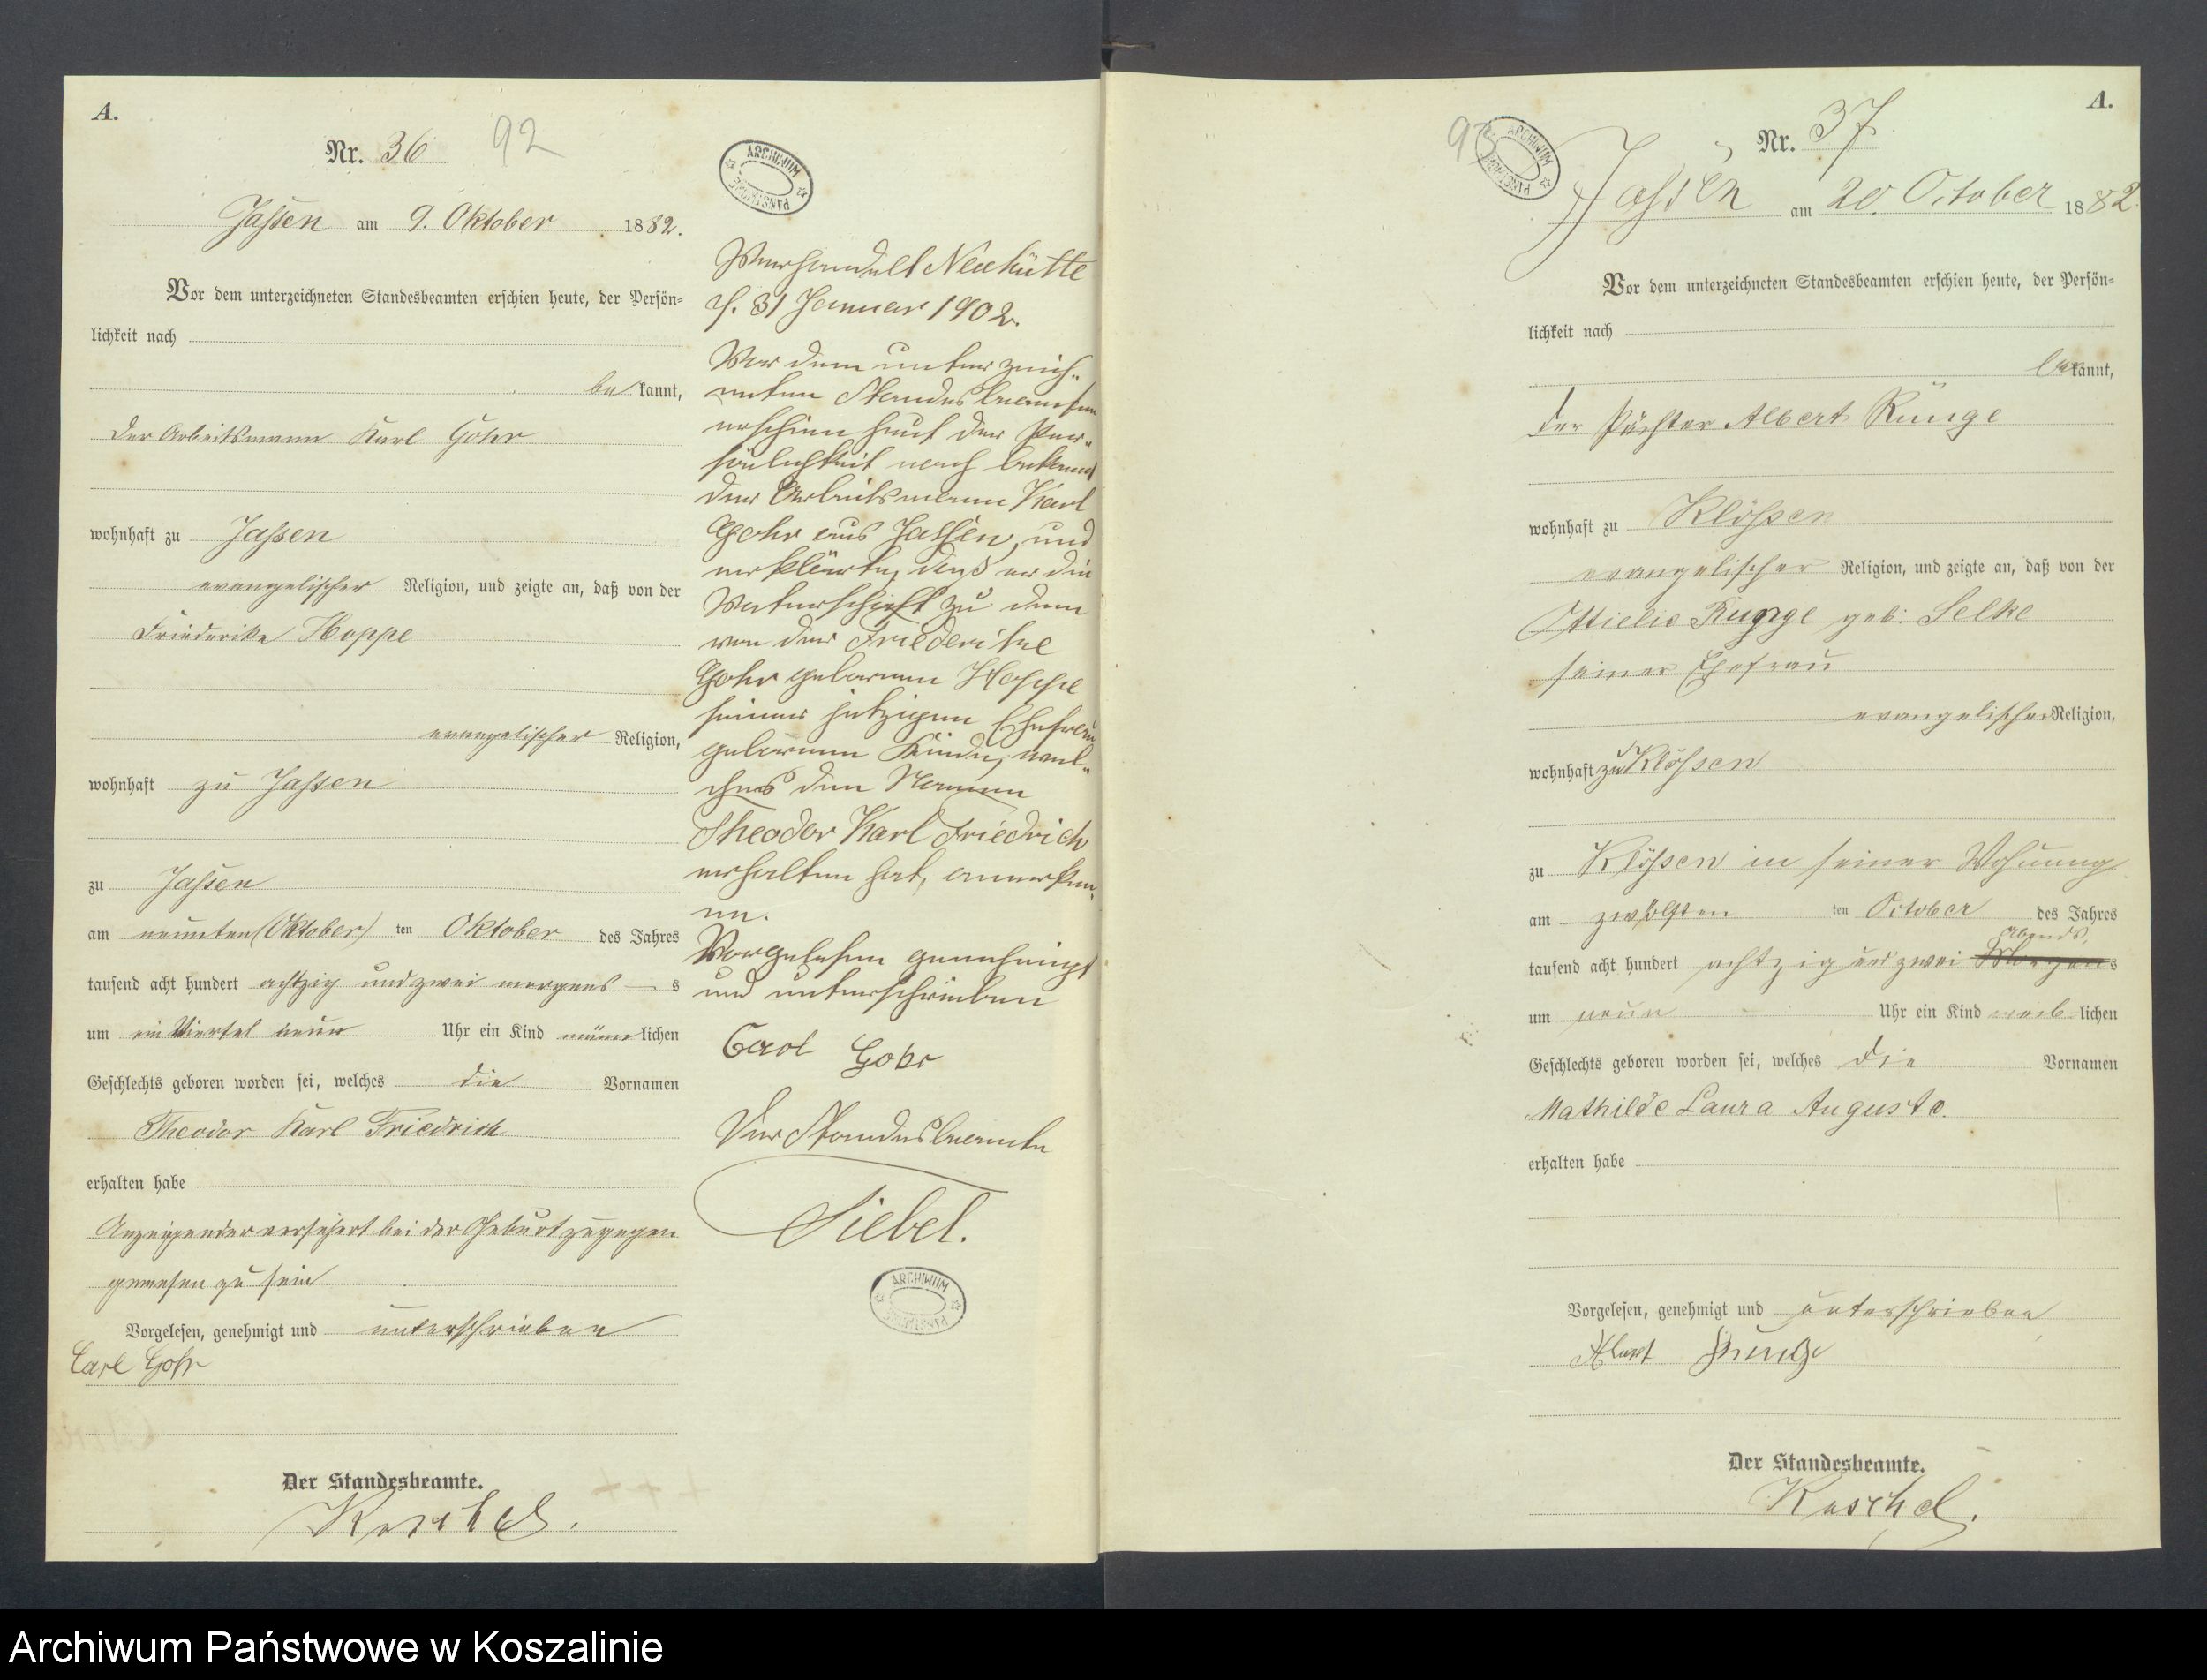 A.
Nr. 36
92
Jassen am 9. Oktober 1882.
Vor dem unterzeichneten Standesbeamten erschien heute, der Persön=
lichkeit nach
be kannt,
der Arbeitsmann Karl Gohr
wohnhaft zu Jassen
evangelischer Religion, und zeigte an, daß von der
Friederike Hoppe
evangelischer Religion,
wohnhaft zu Jassen
zu Jassen
am neunten (Oktober) ten Oktober des Jahres
tausend acht hundert achtzig und zwei morgens — s
um ein Viertel neun Uhr ein Kind männlichen
Geschlechts geboren worden sei, welches die Vornamen
Theodor Karl Friedrich
erhalten habe
Anzeigender versichert bei der Geburt zugegen
gewesen zu sein
Vorgelesen, genehmigt und unterschrieben
Carl Gohr
Der Standesbeamte.
Koschel.
ARCHIWUM PAŃSTWOWE
Verhandelt Neuhütte
d. 31 Januar 1902.
Vor dem unterzeich=
neten Standesbeamten
erschien heut der Per=
sönlichkeit nach bekannt
der Arbeitsmann Karl
Gohr aus Jassen, und
erklärte, daß er die
Vaterschaft zu dem
von der Friederike
Gohr geborenen Hoppe
seiner jetzigen Ehefrau
geborenen Kinde, wel=
ches den Namen
Theodor Karl Friedrich
erhalten hat, anerken=
ne.
Vorgelesen genehmigt
und unterschrieben
Carl Gohr
Der Standesbeamte
Siebel.
ARCHIWUM PAŃSTWOWE
A.
Nr. 37
93
ARCHIWUM PAŃSTWOWE
Jassen am 20. October 1882.
Vor dem unterzeichneten Standesbeamten erschien heute, der Persön=
lichkeit nach
bekannt,
der Pächter Albert Runge
wohnhaft zu Klössen
evangelischer Religion, und zeigte an, daß von der
Ottielie Runge geb: Selke
seiner Ehefrau
evangelischer Religion,
wohnhaft zu Klössen
zu Klössen in seiner Wohnung
am zwölften ten October des Jahres
abends,
tausend acht hundert achtzig und zwei Morgens
um neun Uhr ein Kind weib=lichen
Geschlechts geboren worden sei, welches die Vornamen
Mathilde Laura Auguste.
erhalten habe
Vorgelesen, genehmigt und unterschrieben
Albert Runge
Der Standesbeamte.
Koschel.
Archiwum Państwowe w Koszalinie